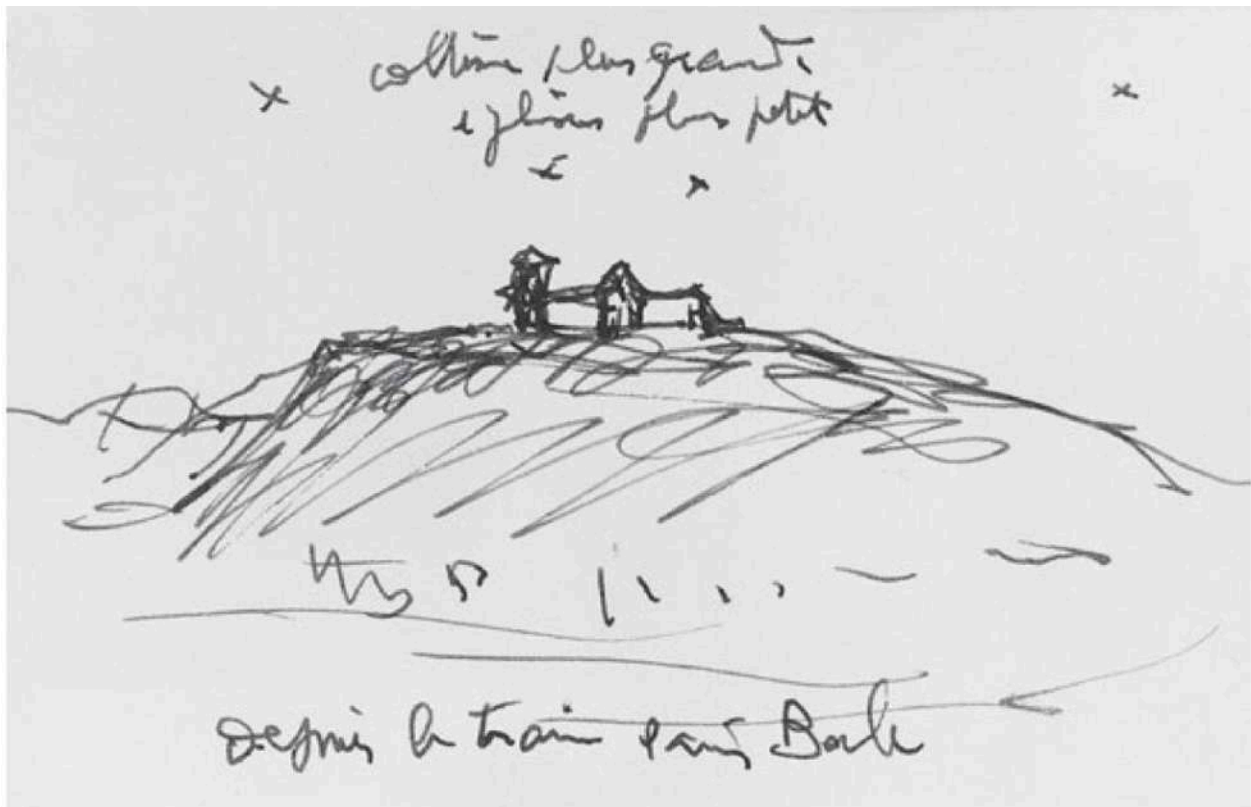 colline plus grande
église plus petit
Depuis le train Paris Basle